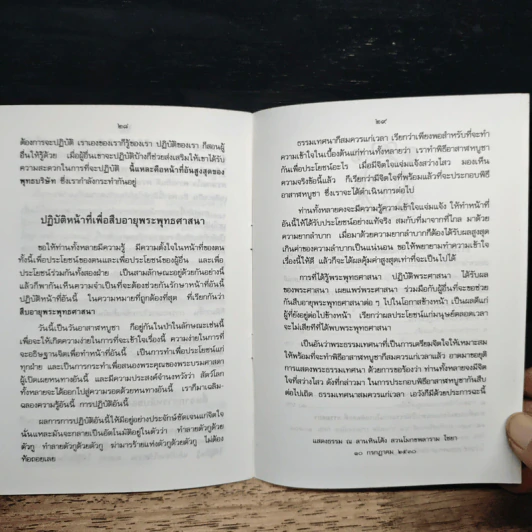 ๒๘
ต้องการจะปฏิบัติ เราเองของเราก็รู้ของเรา ปฏิบัติของเรา ก็สอนผู้
อื่นให้รู้ด้วย เมื่อผู้อื่นเขาจะปฏิบัติบ้างก็ช่วยส่งเสริมให้เขาได้รับ
ความสะดวกในการที่จะปฏิบัติ นี้แหละคือหน้าที่อันสูงสุดของ
พุทธบริษัท ซึ่งเรากำลังกระทำกันอยู่
ปฏิบัติหน้าที่เพื่อสืบอายุพระพุทธศาสนา
ขอให้ท่านทั้งหลายมีความรู้ มีความตั้งใจในหน้าที่ของตน
ทั้งนี้เพื่อประโยชน์ของตนและเพื่อประโยชน์ของผู้อื่น และเพื่อ
ประโยชน์ร่วมกันทั้งสองฝ่าย เป็นสามลักษณะอยู่ด้วยกันอย่างนี้
แล้วก็พากันเห็นความจำเป็นที่จะต้องช่วยกันรักษาหน้าที่อันนี้
ปฏิบัติหน้าที่อันนี้ ในความหมายที่ถูกต้องที่สุด ที่เรียกกันว่า
สืบอายุพระพุทธศาสนา
วันนี้เป็นวันอาสาฬหบูชา ก็อยู่กันในป่าในลักษณะเช่นนี้
เพื่อจะให้เกิดความง่ายในการที่จะเข้าใจเรื่องนี้ ความง่ายในการที่
จะอธิษฐานจิตเพื่อทำหน้าที่อันนี้ เป็นการทำเพื่อประโยชน์แก่
ทุกฝ่าย และเป็นการกระทำเพื่อสนองพระคุณของพระบรมศาสดา
ผู้เปิดเผยหนทางอันนี้ และมีความประสงค์จำนงหวังว่า สัตว์โลก
ทั้งหลายจะได้ออกไปสู่ความรอดด้วยหนทางอันนี้ เราก็มาเฉลิม-
ฉลองความรู้อันนี้ การปฏิบัติอันนี้
ผลการการปฏิบัติอันนี้ให้มีอยู่อย่างประจักษ์ชัดเจนแก่จิตใจ
นั่นแหละมันจะกลายเป็นอัตโนมัติอยู่ในตัวว่า ทำลายตัวกูด้วย
ตัวกู ทำลายตัวกูด้วยตัวกู ฆ่ามารร้ายแห่งตัวกูด้วยตัวกู ไม่ต้อง
ท้อถอยเลย
๒๙
ธรรมเทศนาก็สมควรแก่เวลา เรียกว่าเพียงพอสำหรับที่จะทำ
ความเข้าใจในเบื้องต้นแก่ท่านทั้งหลายว่า เราทำพิธีอาสาฬหบูชา
กันเพื่อประโยชน์อะไร เมื่อมีจิตใจแจ่มแจ้งสว่างไสว มองเห็น
ความจริงข้อนี้แล้ว ก็เรียกว่ามีจิตใจที่พร้อมแล้วที่จะประกอบพิธี
อาสาฬหบูชา ซึ่งเราจะได้ดำเนินการต่อไป
ท่านทั้งหลายคงจะมีความรู้ความเข้าใจแจ่มแจ้ง ให้ทำหน้าที่
อันนี้ให้ได้รับประโยชน์อย่างแท้จริง สมกับที่มาจากที่ไกล มาด้วย
ความยากลำบาก เมื่อมาด้วยความยากลำบากก็ต้องได้รับผลสูงสุด
เกินค่าของความลำบากเป็นแน่นอน ขอให้พยายามทำความเข้าใจ
เรื่องนี้ให้ดี แล้วก็จะได้ผลคุ้มค่าสูงสุดเท่าที่จะเป็นไปได้
การที่ได้รู้พระพุทธศาสนา ปฏิบัติพระศาสนา ได้รับผล
ของพระศาสนา เผยแพร่พระศาสนา ร่วมมือกับผู้อื่นที่จะขอช่วย
กันสืบอายุพระพุทธศาสนาต่อ ๆ ไปในโอกาสข้างหน้า เป็นผลดีแก่
ผู้ที่ยังอยู่ต่อไปข้างหน้า เรียกว่าผลประโยชน์แก่มนุษย์ตลอดเวลา
จะไม่เสียทีที่ได้พบพระพุทธศาสนา
เป็นอันว่าพระธรรมเทศนาที่เป็นการเตรียมจิตใจให้เหมาะสม
ให้พร้อมที่จะทำพิธีอาสาฬหบูชาก็สมควรแก่เวลาแล้ว อาตมาขอยุติ
การแสดงพระธรรมเทศนา ด้วยการขอร้องว่า ท่านทั้งหลายจงมีจิต
ใจที่สว่างไสว ดังที่กล่าวมา ในการประกอบพิธีอาสาฬหบูชากันสืบ
ต่อไปเถิด ธรรมเทศนาสมควรแก่เวลา เอวังก็มีด้วยประการฉะนี้
แสดงธรรม ณ ลานหินโค้ง สวนโมกขพลาราม ไชยา
๑๐ กรกฎาคม ๒๕๓๐